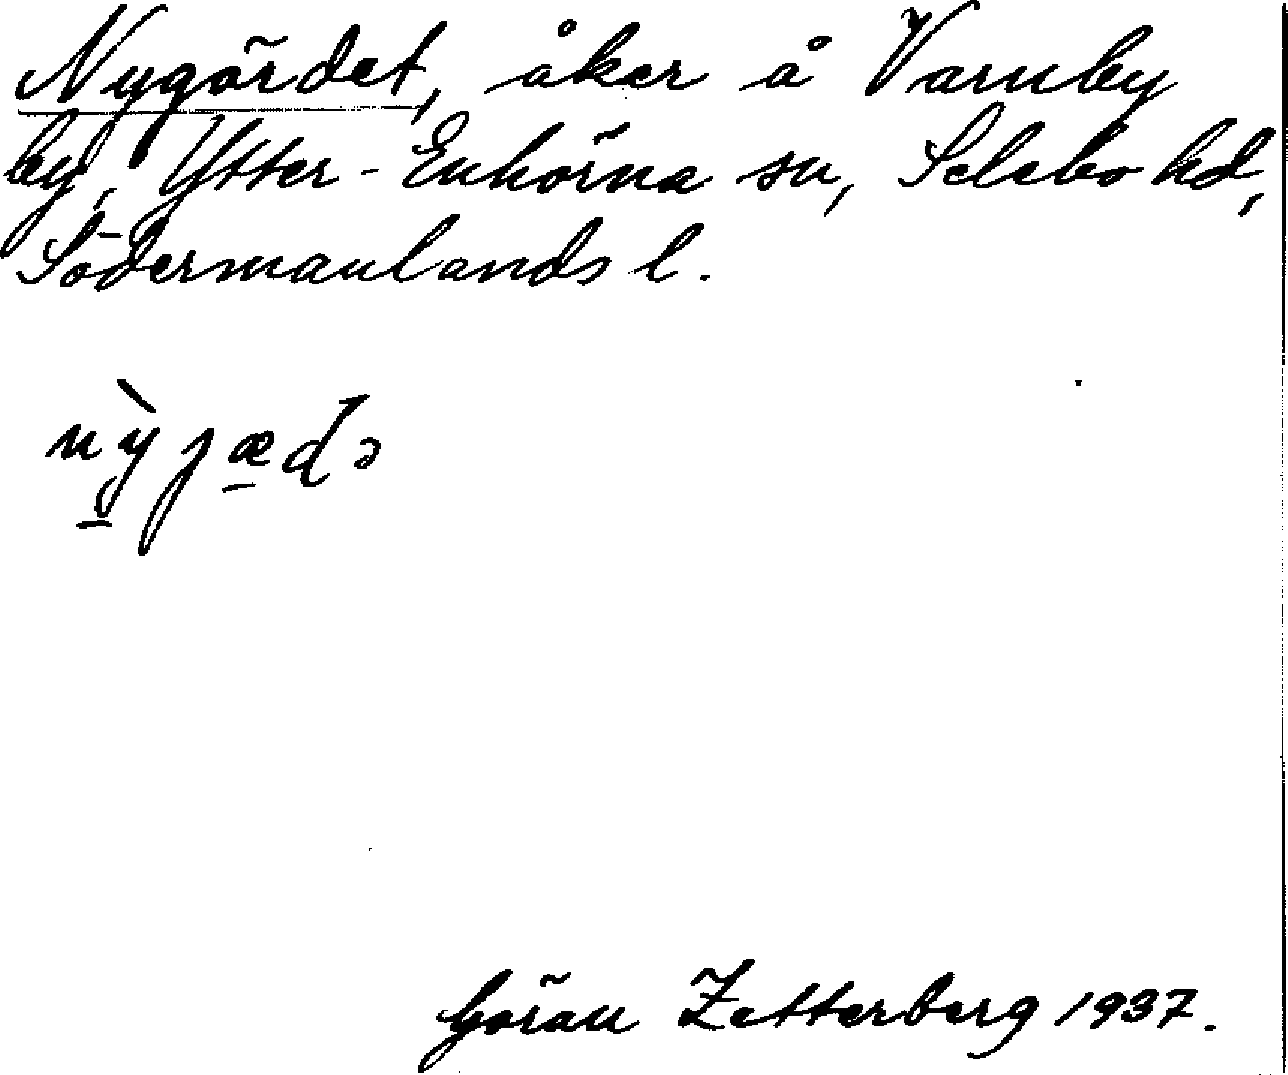 Nygärdet, åker å Varuby
by, Ytter-Enhörna sn, Selebo hd,
Södermanlands l.
nỳjædə
Göran Zetterberg 1937.